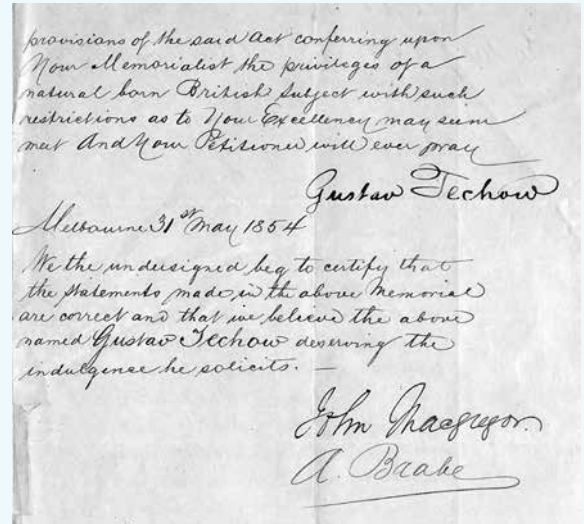 provisions of the said Act conferring upon
Your Memorialist the privileges of a
natural born British subject with such
restrictions as to Your Excellency may seem
meet And Your Petitioner will ever pray
Gustav Techow
Melbourne 31st May 1854
We the undersigned beg to certify that
the statements made in the above Memorial
are correct and that we believe the above
named Gustav Techow deserving the
indulgence he solicits. —
John Macgregor.
A. Brahe